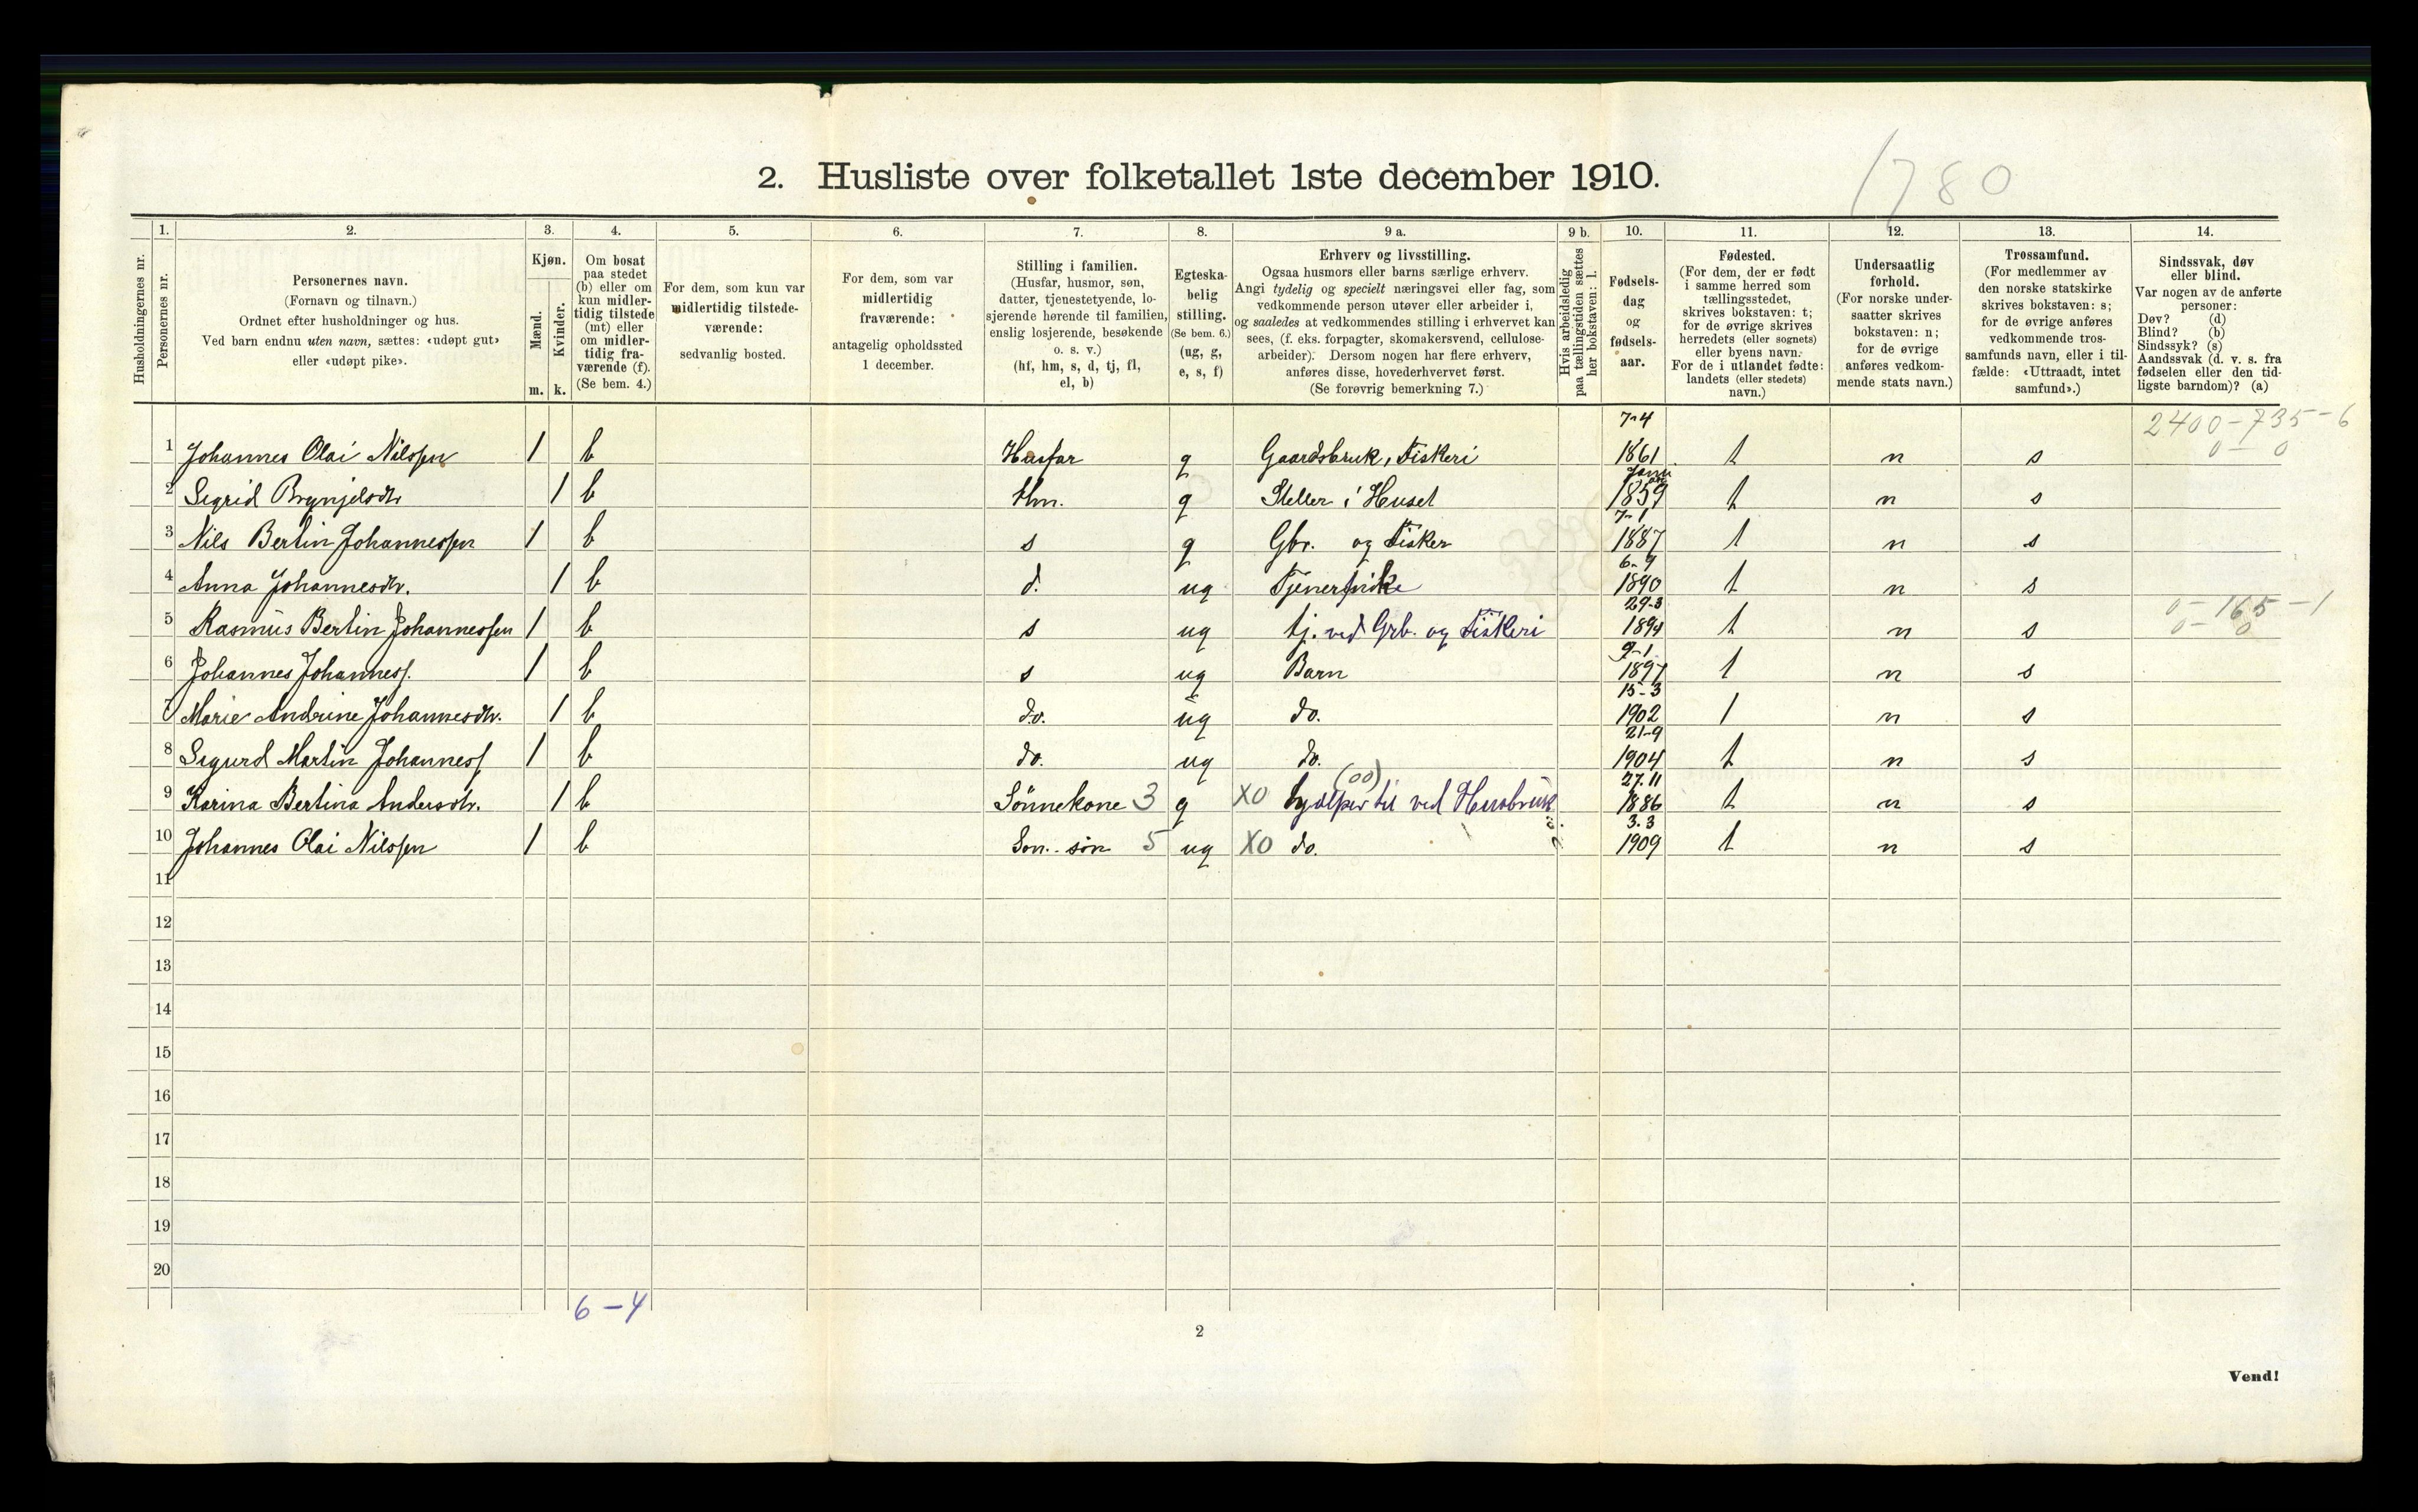 2. Husliste over folketallet 1ste december 1910.
1780
Husholdningernes nr.
1. Personernes nr.
2. Personernes navn.
(Fornavn og tilnavn.)
Ordnet efter husholdninger og hus.
Ved barn endnu uten navn, sættes: «udøpt gut»
eller «udøpt pike».
3. Kjøn.
Mænd. m.
Kvinder. k.
4. Om bosat
paa stedet
(b) eller om
kun midler-
tidig tilstede
(mt) eller
om midler-
tidig fra-
værende (f).
(Se bem. 4.)
5. For dem, som kun var
midlertidig tilstede-
værende:
sedvanlig bosted.
6. For dem, som var
midlertidig
fraværende:
antagelig opholdssted
1 december.
7. Stilling i familien.
(Husfar, husmor, søn,
datter, tjenestetyende, lo-
sjerende hørende til familien,
enslig losjerende, besøkende
o. s. v.)
(hf, hm, s, d, tj, fl,
el, b)
8. Egteska-
belig
stilling.
(Se bem. 6.)
(ug, g,
e, s, f)
9 a. Erhverv og livsstilling.
Ogsaa husmors eller barns særlige erhverv.
Angi tydelig og specielt næringsvei eller fag, som
vedkommende person utøver eller arbeider i,
og saaledes at vedkommendes stilling i erhvervet kan
sees, (f. eks. forpagter, skomakersvend, cellulose-
arbeider). Dersom nogen har flere erhverv,
anføres disse, hovederhvervet først.
(Se forøvrig bemerkning 7.)
9 b. Hvis arbeidsledig
paa tællingstiden sættes
her bokstaven: l.
10. Fødsels-
dag
og
fødsels-
aar.
11. Fødested.
(For dem, der er født
i samme herred som
tællingsstedet,
skrives bokstaven: t;
for de øvrige skrives
herredets (eller sognets)
eller byens navn.
For de i utlandet fødte:
landets (eller stedets)
navn.)
12. Undersaatlig
forhold.
(For norske under-
saatter skrives
bokstaven: n;
for de øvrige
anføres vedkom-
mende stats navn.)
13. Trossamfund.
(For medlemmer av
den norske statskirke
skrives bokstaven: s;
for de øvrige anføres
vedkommende tros-
samfunds navn, eller i til-
fælde: «Uttraadt, intet
samfund».)
14. Sindssvak, døv
eller blind.
Var nogen av de anførte
personer:
Døv? (d)
Blind? (b)
Sindssyk? (s)
Aandssvak (d. v. s. fra
fødselen eller den tid-
ligste barndom)? (a)
2400-735-6
0-0
1 Johannes Olai Nilssen 1 b Husfar g Gaardsbruk, Fiskeri 7-4 1861 t n s
2 Sigrid Brynjelsdtr 1 b Hm. g Steller i Huset 1859 t n s
3 Nils Bertin Johannessen 1 b s g Gbr. og Fisker 7-1 1887 t n s
4 Anna Johannesdtr. 1 b d. ug Tjenerpike 6-9 1890 t n s
5 Rasmus Bertin Johannessen 1 b s ug tj. ved Grb. og Fiskeri 29-3 1894 t n s 0-165-1
0-0
6 Johannes Johanness. 1 b s ug Barn 9-1 1897 t n s
7 Marie Andrine Johannesdtr. 1 b do. ug do. 15-3 1902 t n s
8 Sigurd Martin Johanness 1 b do. ug do. 21-9 1904 t n s
9 Karina Bertina Andersdtr. 1 b Sönnekone 3 g XO (00) hjælper til ved Husbruk 27.11 1886 t n s
10 Johannes Olai Nilssen 1 b Son. søn 5 ug XO do. 3.3 1909 t n s
11
12
13
14
15
16
17
18
19
20
6-4
2
Vend!